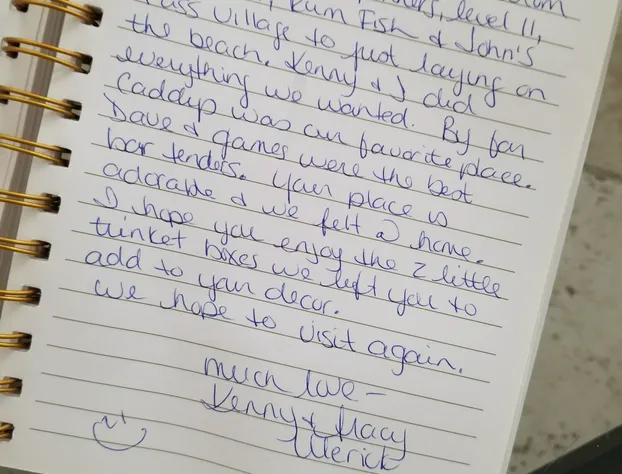 Rum Fish & John's
Pass Village to just laying on
the beach. Kenny & I did
everything we wanted. By far
Caddys was our favorite place.
Dave & James were the best
bar tenders. Your place is
adorable & we felt @ home.
I hope you enjoy the 2 little
trinket boxes we left you to
add to your decor.
We hope to visit again.
much love -
Kenny & Tracy